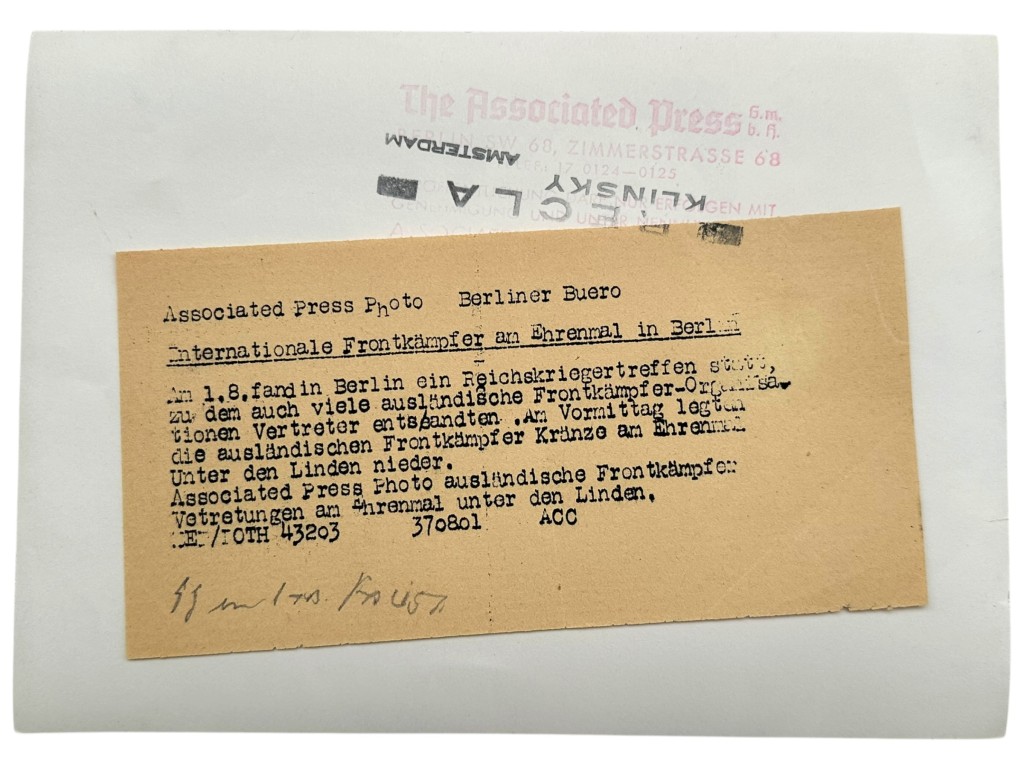 The Associated Press G.m.b.H.
BERLIN SW 68, ZIMMERSTRASSE 68
17 0124—0125
AMSTERDAM
KLINSKY
RECLA
Associated Press Photo Berliner Buero
Internationale Frontkämpfer am Ehrenmal in Berlin
Am 1.8.fand in Berlin ein Reichskriegertreffen statt,
zu dem auch viele ausländische Frontkämpfer-Organisa-
tionen Vertreter entsandten .Am Vormittag legten
die ausländischen Frontkämpfer Kränze am Ehrenmal
Unter den Linden nieder.
Associated Press Photo ausländische Frontkämpfer
Vetretungen am Ehrenmal unter den Linden.
43203 370801 ACC